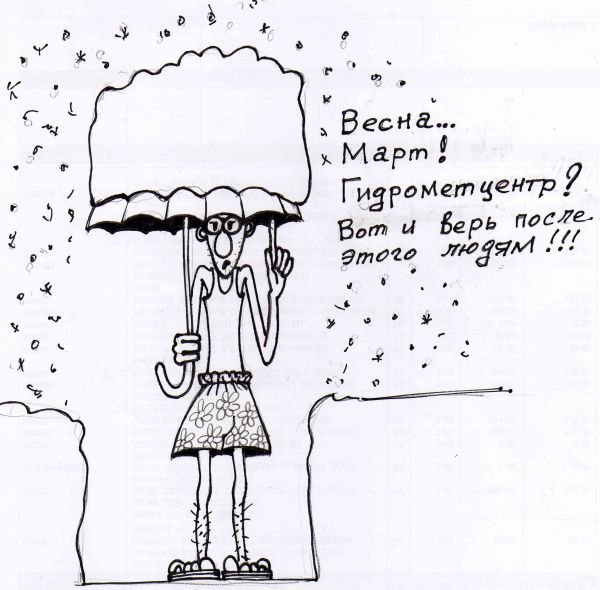 Весна...
Март!
Гидрометцентр?
Вот и верь после
этого людям!!!